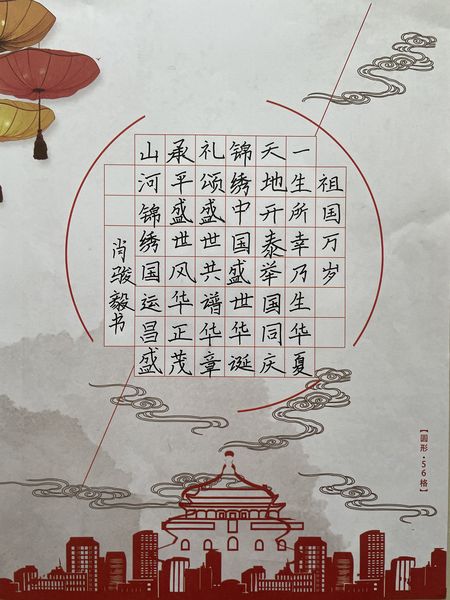 祖国万岁
一生所幸乃生华夏
天地开泰举国同庆
锦绣中国盛世华诞
礼颂盛世共谱华章
承平盛世风华正茂
山河锦绣国运昌盛
肖骏毅书
【圆形·56格】